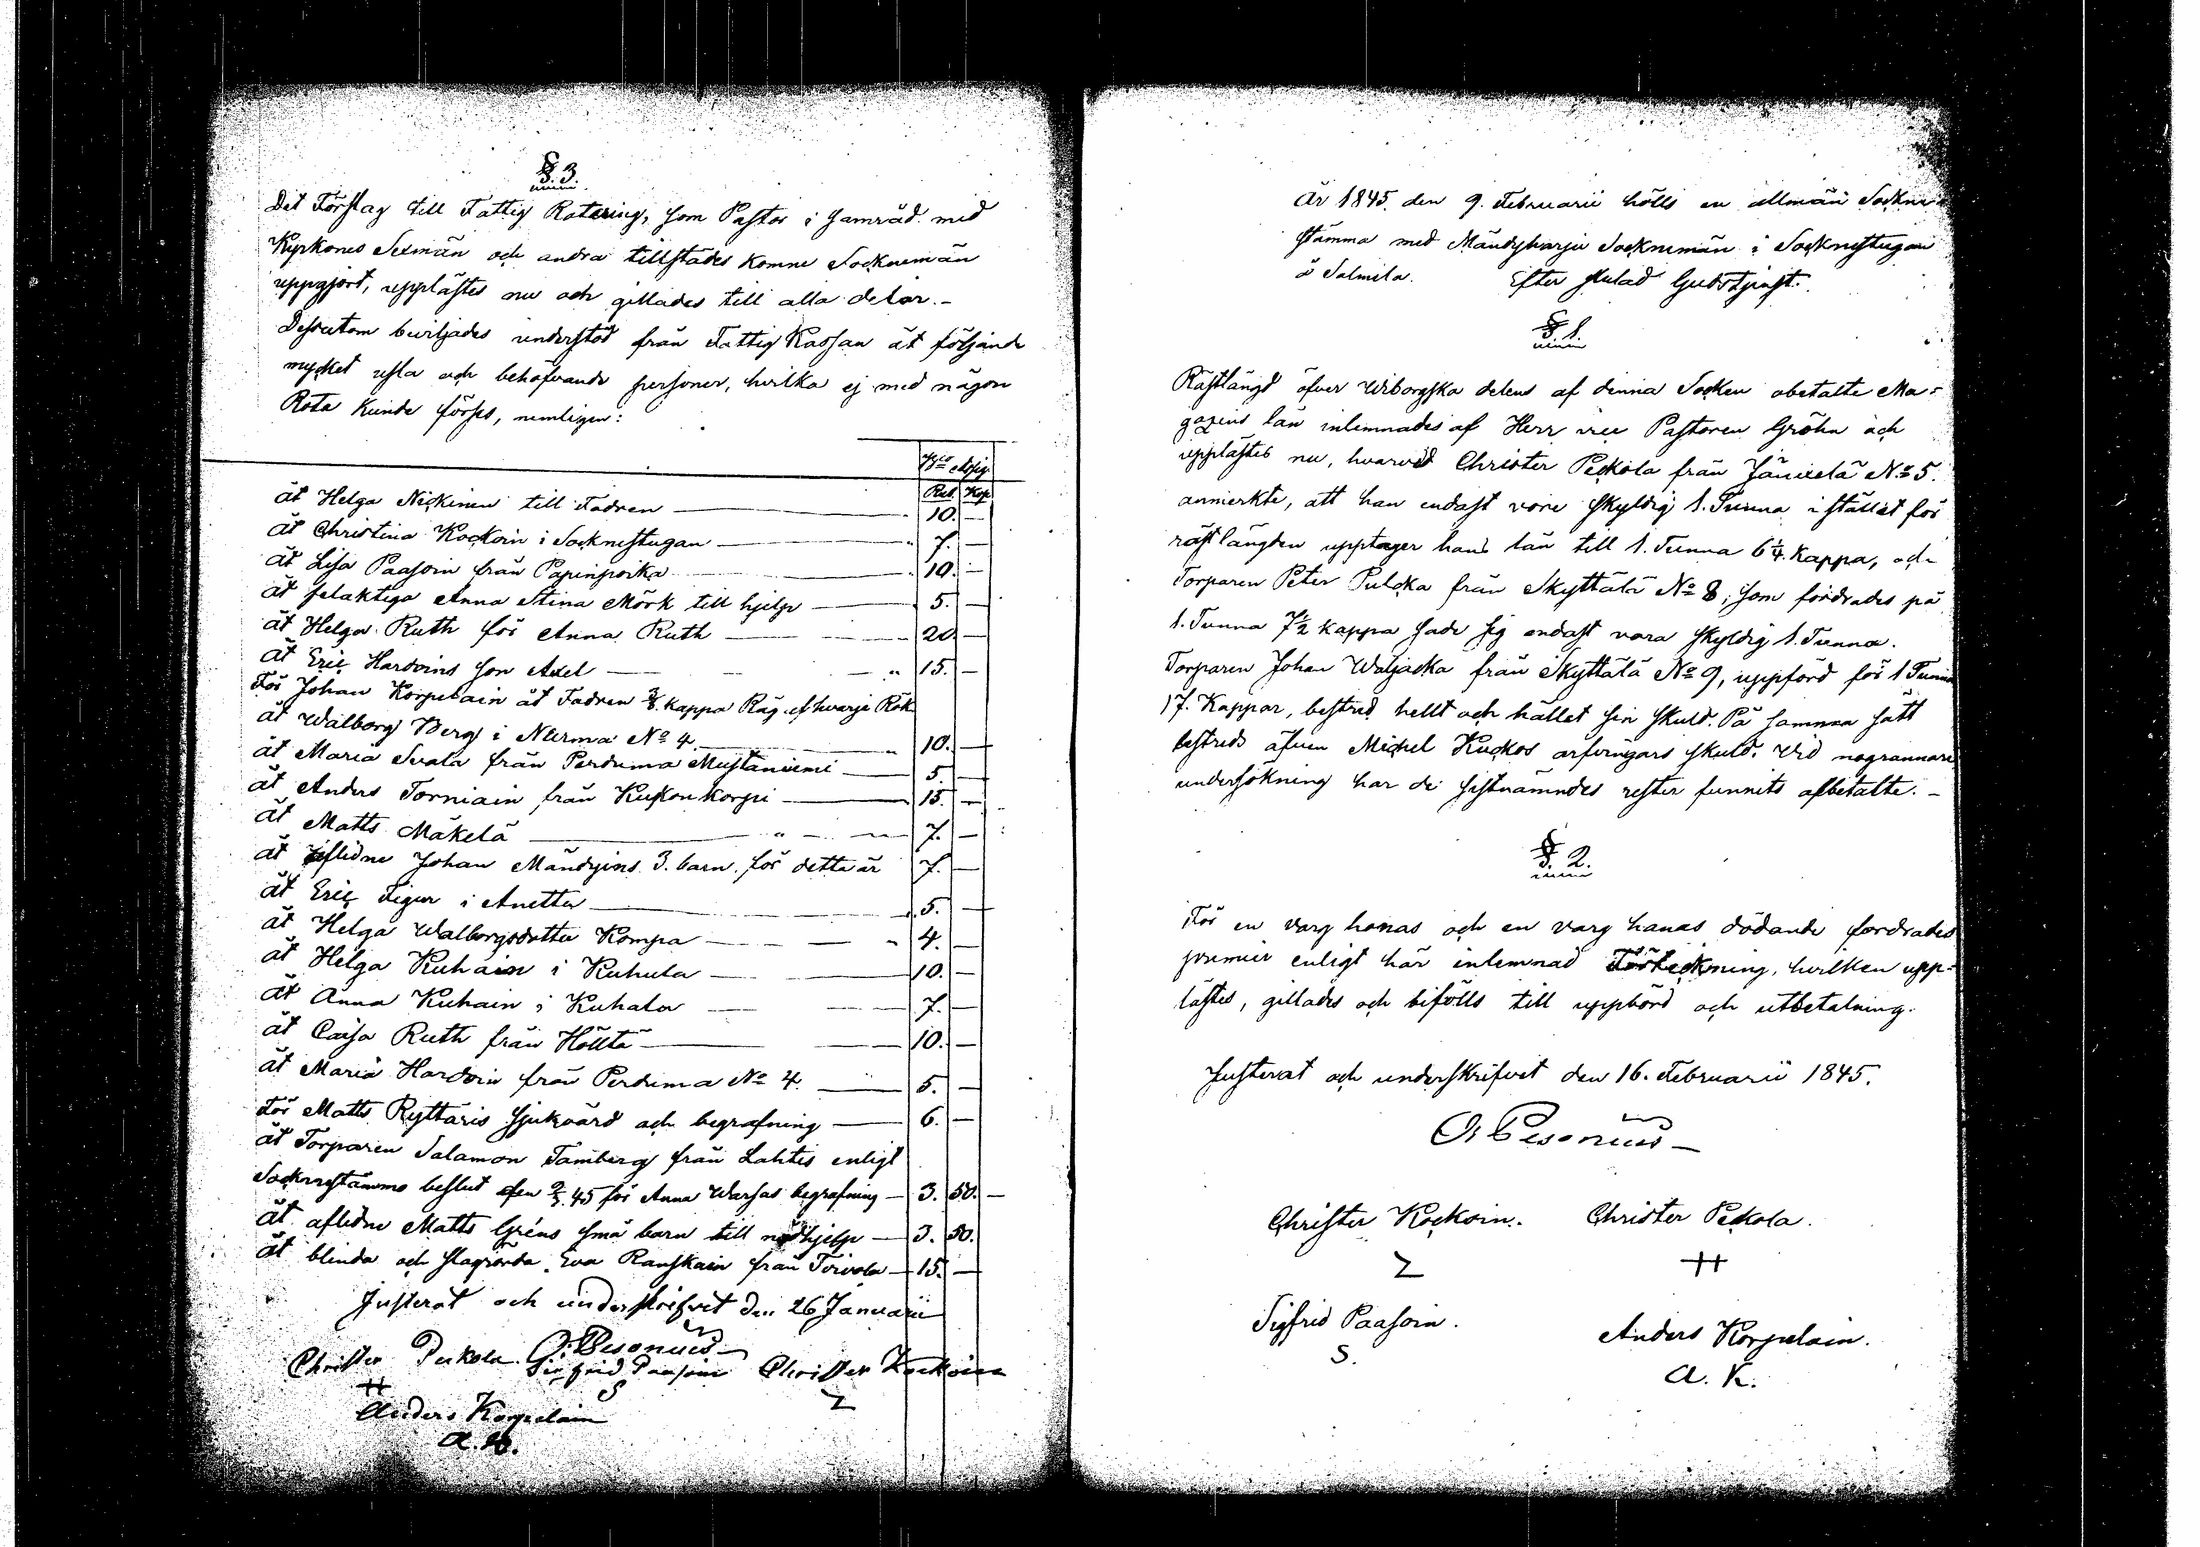 §. 3.
Det Förslag till Fattig Rotering, som Pastor i samråd med
Kyrkones Sexmän och andra tillstädes komne Socknemän
uppgjort, upplästes nu och gillades till alla delar.-
Dessutom beviljades understöd från Fattig Kassan åt följande
mycket usla och behöfvande personer, hvilka ej med någon
Rota kunde förses, nemligen:
Rub. Kop.
åt Helga Nickinen till Fadren 10. —
åt Christina Kockoin i Socknestugan 7. —
åt Lisa Paasoin från Papinpoika 10. —
åt felaktiga Anna Stina Mörk till hjelp 5. —
åt Helga Ruth för Anna Ruth 20 —
åt Eric Hardoins son Axel 15. —
För Johan Korpelain åt Fadren 3/8 kappa Råg af hvarje Rök
åt Walborg Berg i Nerma No 4. 10. —
åt Maria Suala från Perduma Mustaniemi 5. —
åt Anders Torniain från Kukonkorpi 15. —
åt Matts Mäkelä 7. —
åt aflidne Johan Mändyins 3. barn för detta år 7. —
åt Eric Figur i Anetta 5. —
åt Helga Walborgsdotter Kompa 4. —
åt Helga Kuhain i Kuhula 10. —
åt Anna Kuhain i Kuhala 7. —
åt Caisa Ruth från Hölltä 10. —
åt Maria Hardoin från Perduma No 4. 5. —
För Matts Ryttäris sjukvård och begrafning 6. —
åt Torparen Salamon Tamberg från Lahtis enligt
Socknestämmo beslut den 9/3. 45 för Anna Warsas begrafning 3. 50.
åt aflidne Matts Gréns små barn till nödhjelp 3. 50.
åt blinda och slagrörda Eva Ranskain från Toivola 15. —
Justerat och underskrifvit den 26 Januarii
O: Pesonius
Christer Peckola Sigfrid Paasoin Christer Kockoin
H S Z
Anders Korpelain
A. K.
År 1845 den 9. Februarii hölls en allmän Sockne
stämma med Mändyharju Socknemän i Socknestugan
å Salmela. Efter slutad Gudstjenst.
§ 1.
Restlängd öfver Wiborgska delens af denna Socken obetalte Ma-
gazins lån inlemnades af Herr vice Pastoren Gröhn och
upplästes nu, hvarvid Christer Peckola från Jänixelä No 5.
anmerkte, att han endast vore skyldig 1. Tunna i stället för
restlängden upptager hans lån till 1. Tunna 6 1/4. kappa, och
Torparen Peter Pulcka från Skyttälä No 8, som fordrades på
1. Tunna 7 1/2 kappa sade sig endast vara skyldig 1. Tunna.
Torparen Johan Waljacka från Skyttälä No 9, uppförd för 1 Tunna
17. Kappar, bestred hellt och hållet sin skuld. På samma sätt
bestreds äfven Michel Kuckos arfvingars skuld. Vid nogrannare
undersökning har de sistnämndes rester funnits afbetalte. -
§. 2.
För en varg honas och en varg hanas dödande fordrades
premier enligt här inlemnad Förteckning, hvilken upp-
lästes, gillades och bifölls till uppbörd och utbetalning.
Justerat och underskrifvit den 16. Februarii 1845.
O: Pesonius
Christer Kockoin. Christer Peckola.
Z H
Sigfrid Paasoin. Anders Korpelain.
S. A. K.